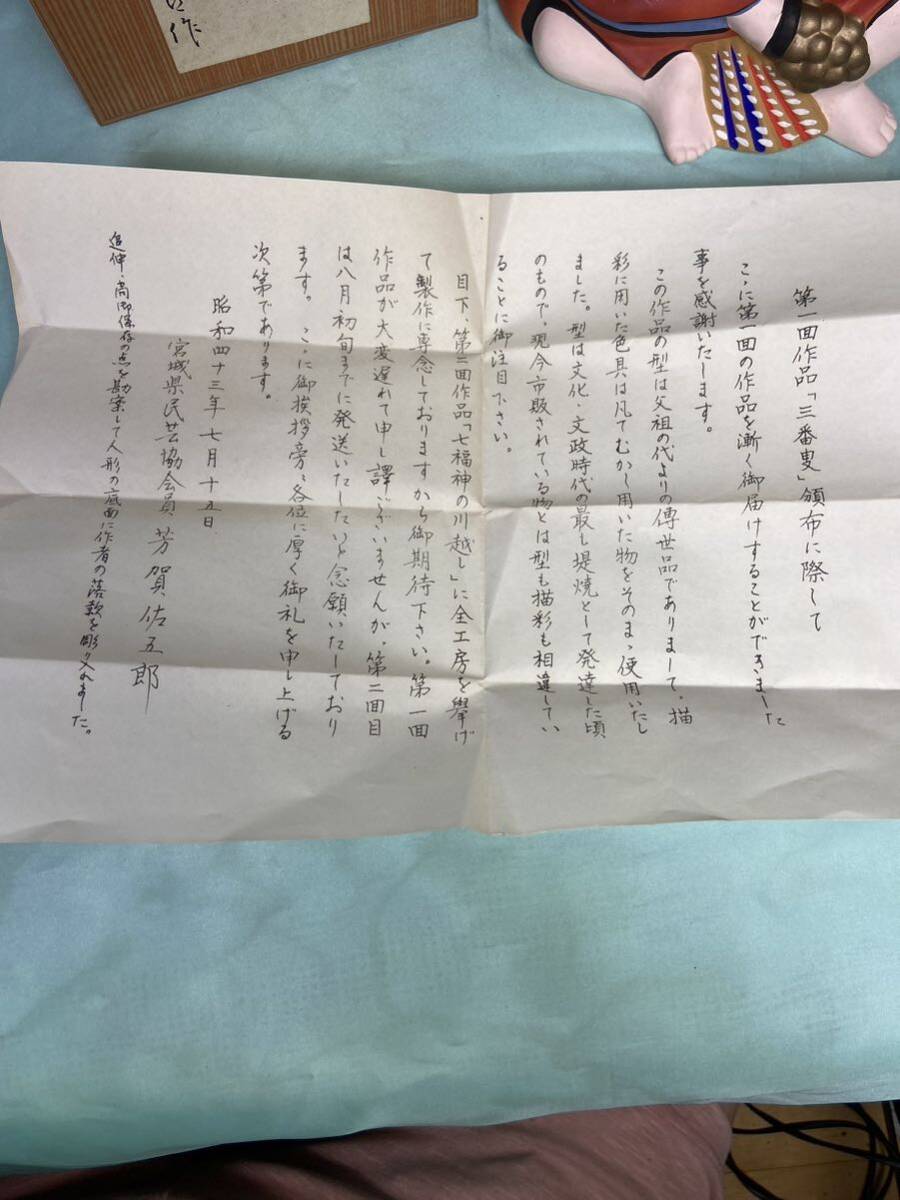 第一面作品「三番叟」頒布に際して
こゝに第一面の作品を漸く御届けすることができました
事を感謝いたします。
この作品の型は父祖の代よりの傳世品でありまして。描
彩に用いた色具は凡てむかし用いた物をそのまゝ使用いたし
ました。型は文化・文政時代の最も堤焼として発達した頃
のもので、現今市販されている物とは型も描彩も相違してい
ることに御注目下さい。
目下、第二面作品「七福神の川越し」に全工房を挙げ
て製作に専念しておりますから御期待下さい。第一面
作品が大変遅れて申し譯ございませんが、第二面目
は八月初旬までに発送いたしたいと念願いたしており
ます。こゝに御挨拶旁々各位に厚く御礼を申し上げる
次第であります。
昭和四十三年七月十五日
宮城県民芸協会員 芳賀佐五郎
追伸・尚御保存の点を勘案して人形の底面に作者の落款を彫り入れました。
作